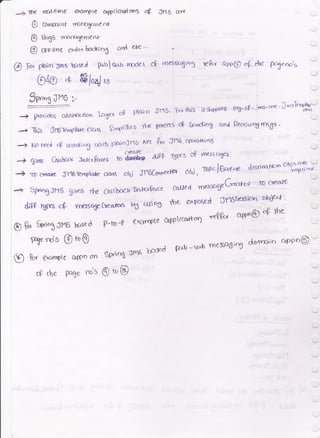 → The realtime example applications of JMS are
① Complaint management
② Bugs management
③ OFFline order booking and etc..
For plain JMS based Pub/Sub model of messaging refer app of the page no's
Spring JMS :-
→ provides abstraction layer of plain JMS. For this it supports org.sf.jms.core.JmsTemplate
→ This JMSTemplate class simplifies the process of sending and Receiving msgs.
→ No need of working with plain JMS API for JMS operations
→ gives Callback Interfaces to create diff types of messages
→ To create JMSTemplate class obj JMSConnection obj, Topic/Queue destination objs are required.
→ Spring JMS gives the callback Interface called messageCreator to create
diff types of messageCreators by using the exposed JMSSession object.
for Spring JMS based P-to-P example application reffer appn of the
page no's to
for example appn on Spring JMS based Pub-sub messaging domain appn
of the page no's to